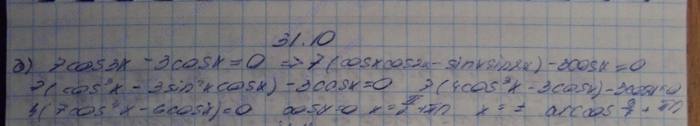 31.10
а) 7cos3x - 3cosx = 0 => 7(cosxcos2x - sinxsin2x) - 3cosx = 0
7(cos³x - 3sin²xcosx) - 3cosx = 0 7(4cos³x - 3cosx) - 3cosx = 0
4(7cos³x - 6cosx) = 0 cosx = 0 x = π/2 + πn x = ± arccos